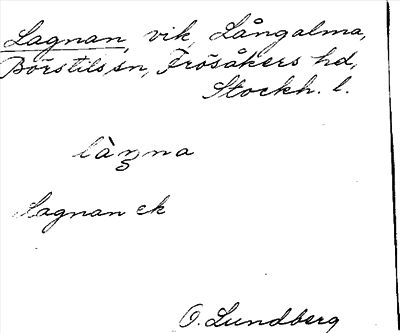 Lagnan, vik, Långalma,
Börstils sn, Frösåkers hd,
Stockh. l.
làŋna
Lagnan ek
O. Lundberg